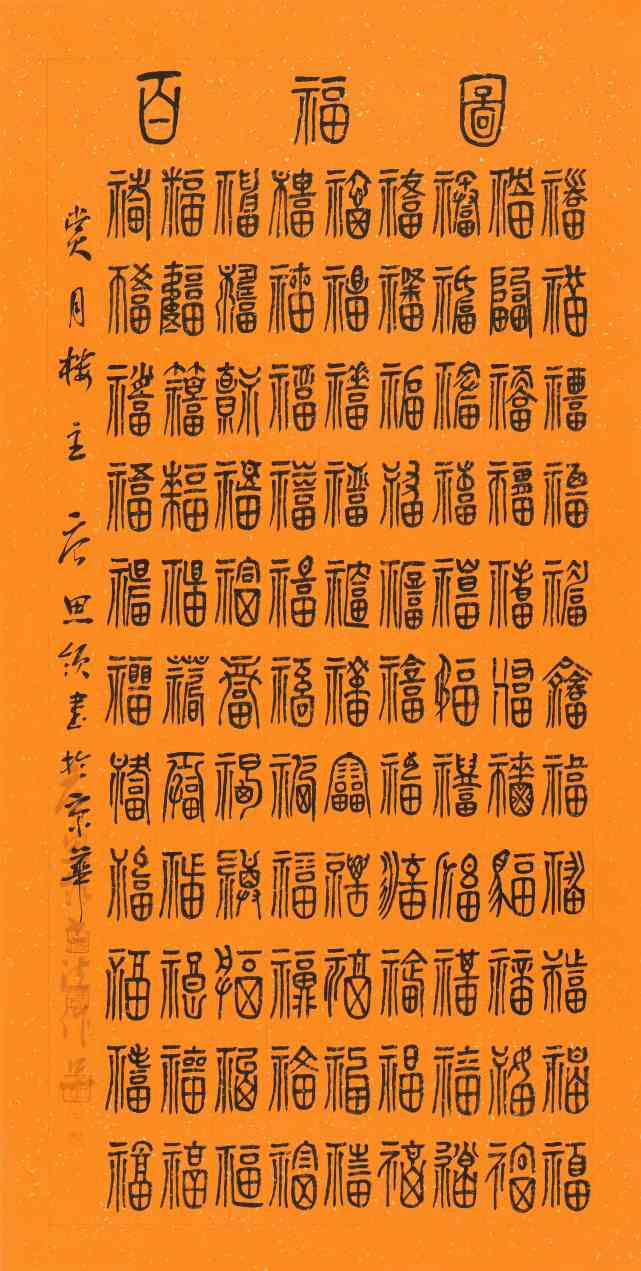 百福圖
福福福福福福福福福
福福福福福福福福福
福福福福福福福福福
福福福福福福福福福
福福福福福福福福福
福福福福福福福福福
福福福福福福福福福
福福福福福福福福福
福福福福福福福福福
福福福福福福福福福
福福福福福福福福福
賞月樓主 思書於京華